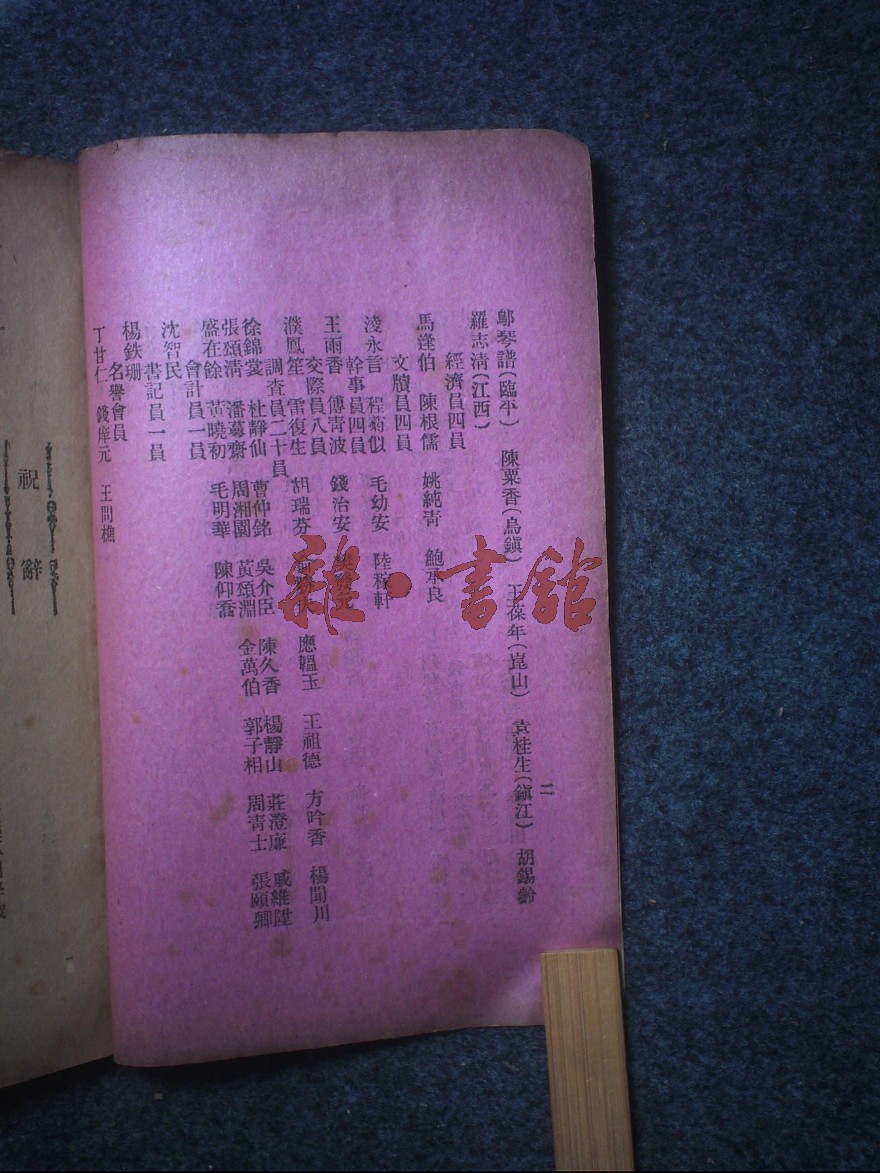 二
鄔琴譜(臨平) 陳粟香(烏鎮) 王葆年(崑山) 袁桂生(鎮江) 胡錫齡
羅志清(江西)
經濟員四員
馬逢伯 陳根儒 姚純青 鮑承良
文牘員四員
淩永言 程菊似 毛幼安 陸稼軒
幹事員四員
王雨香 傅青波 錢治安
交際員八員
濮鳳笙 雷復生 胡瑞芬 應韞玉 王祖德 方吟香 楊聞川
調查員二十員
徐錦裳 杜靜仙 曹仲銘 吳介臣 陳久香 楊靜山 莊澄廉 戚維陞
張頌清 潘蕚齋 周湘園 黃頌淵 金萬伯 郭子相 周青士 張頤卿
盛在餘 黃曉初 毛明華 陳仰喬
會計員一員
沈智民
書記員一員
楊鉄珊
名譽會員
丁甘仁 錢庠元 王問樵
祝辭
雜·書舘